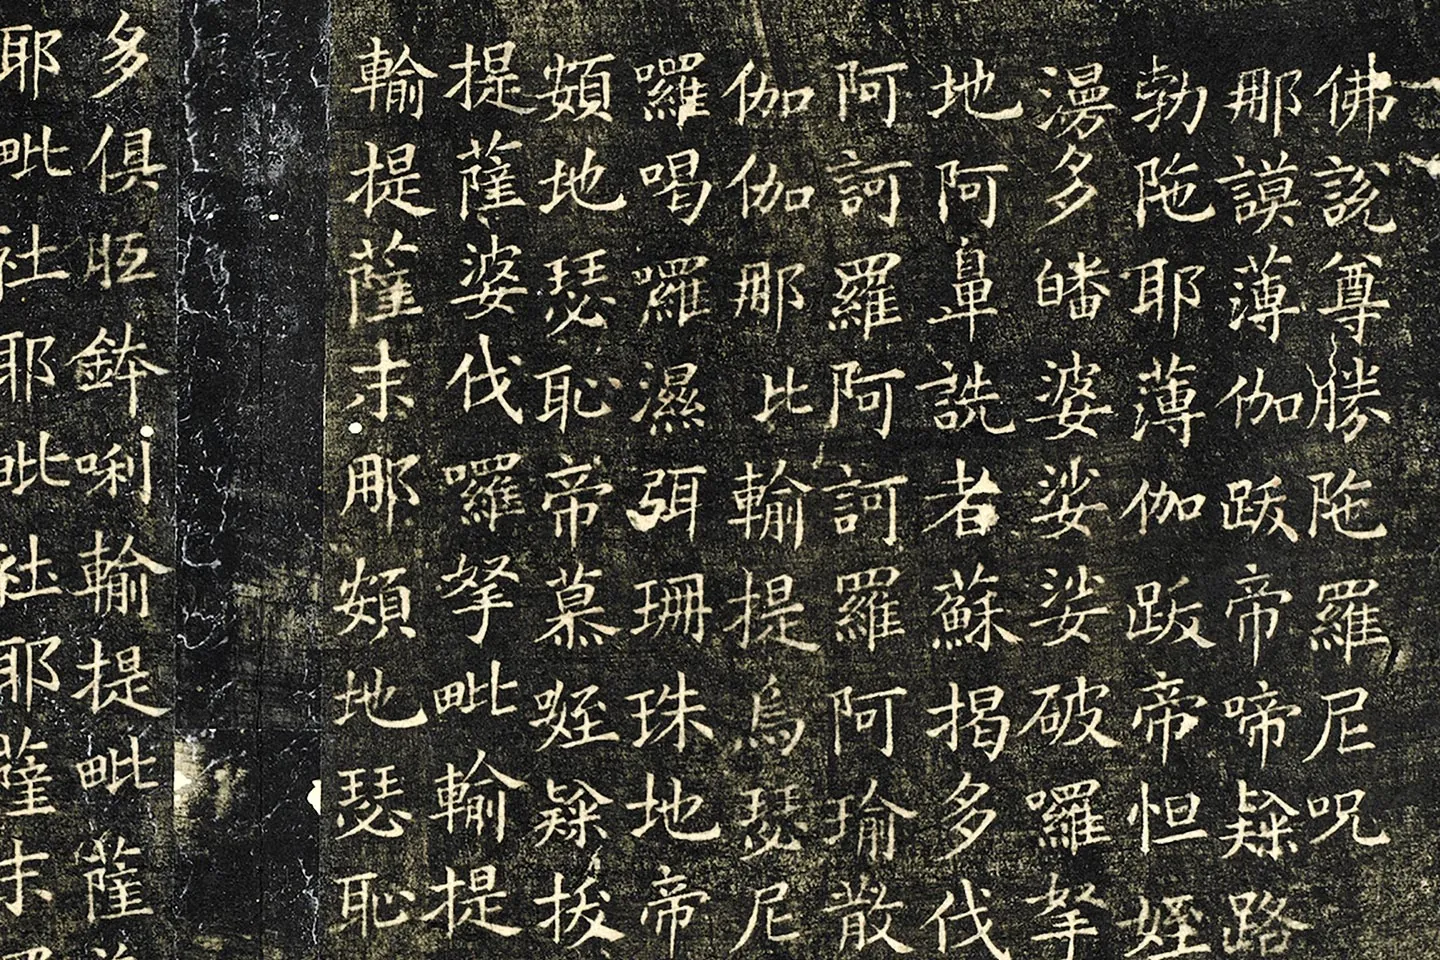 佛說尊勝陁羅尼呪
那謨薄伽跋帝啼隸路
勃陁耶薄伽跋帝怛姪
漫多皤娑娑破囉拏
地阿鼻詵者蘇揭多伐
阿訶羅阿訶羅阿瑜散
伽伽那比輸提烏瑟尼
囉喝囉濕弭珊珠地帝
頞地瑟耻帝慕姪隸拔
提薩婆伐囉拏毗輸提
輸提薩末那頞地瑟耻
多俱胝鉢唎輸提毗薩
耶毗社耶毗社耶薩末